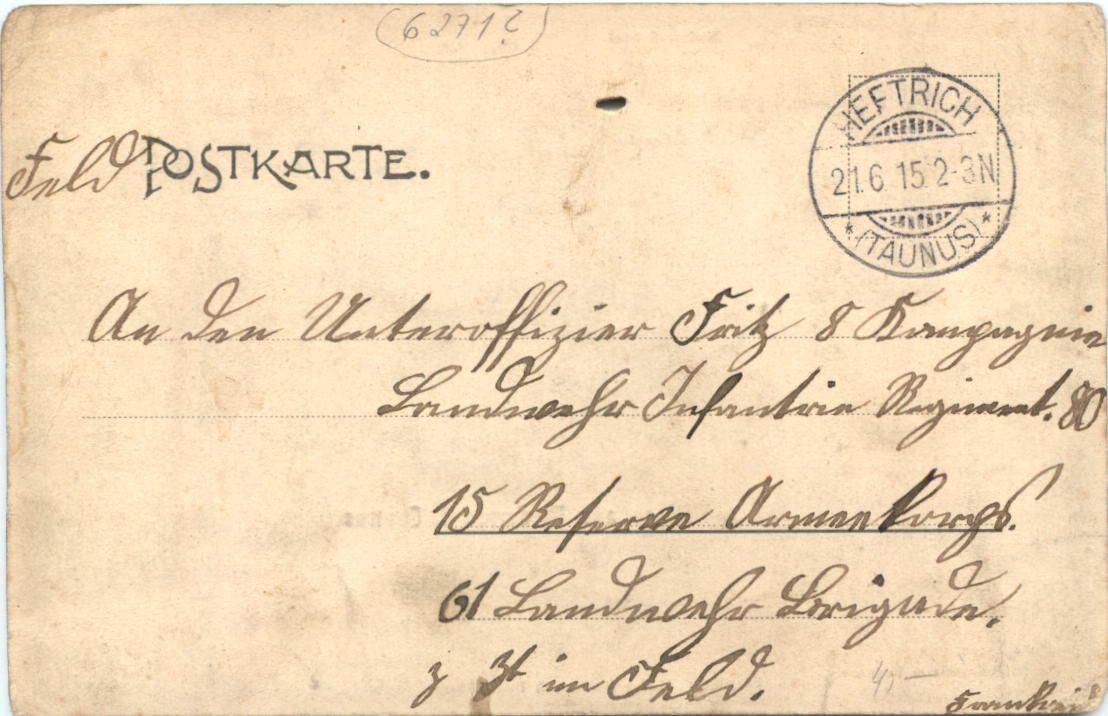 (6271?)
Feld POSTKARTE.
HEFTRICH
21.6.15.2-3N
* (TAUNUS) *
An den Unteroffizier Fritz 8 Kompagnie
Landwehr Infantrie Regiment. 80
15 Reserve Armeekorps.
61 Landwehr Brigade.
z Zt im Feld.
4,—